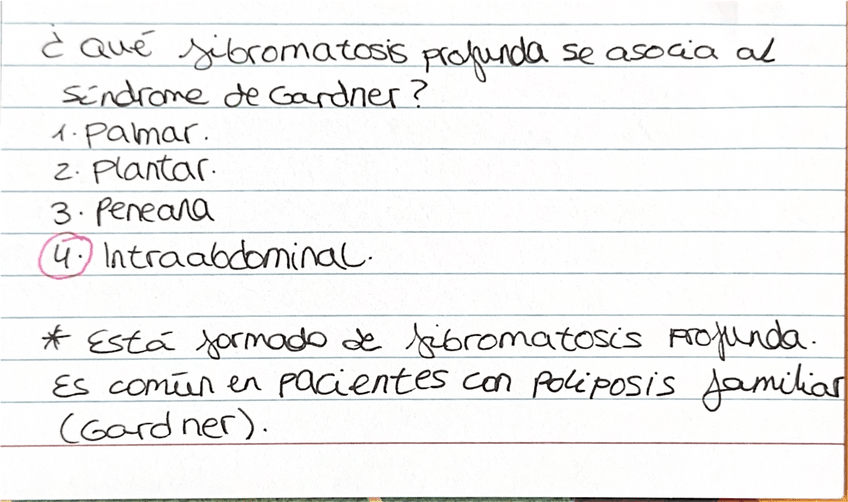 ¿Qué fibromatosis profunda se asocia al
síndrome de Gardner?
1. Palmar.
2. Plantar.
3. Peneana
4. Intraabdominal.
* Está formado de fibromatosis profunda.
Es común en pacientes con poliposis familiar
(Gardner).